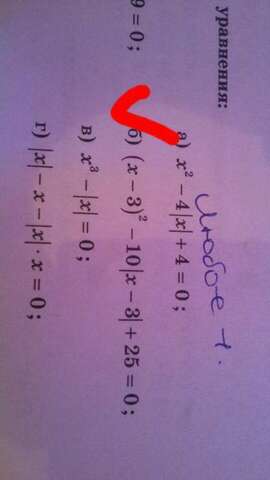 уравнения:
Любое 1.
а) x² − 4|x| + 4 = 0;
9 = 0;
б) (x − 3)² − 10|x − 3| + 25 = 0;
в) x³ − |x| = 0;
г) |x| − x − |x| · x = 0;